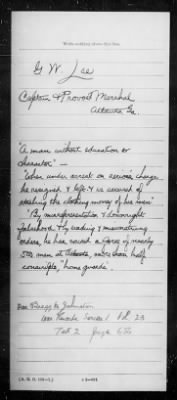 G. W. Lee
Captain & Provost Marshal
Atlanta Ga.
"A man without education or
character." —
"When under arrest on serious charges
he resigned & left. & is accused of
stealing the clothing money of his men"
"By misrepresentation & downright
falsehood. By evading & misconstruing
orders, he has raised a force of nearly
500 men at Atlanta, more than half
conscripts, 'home guards'.
See Bragg to Johnston
War Records Series 1 Vol. 23
Part 2 Page 656